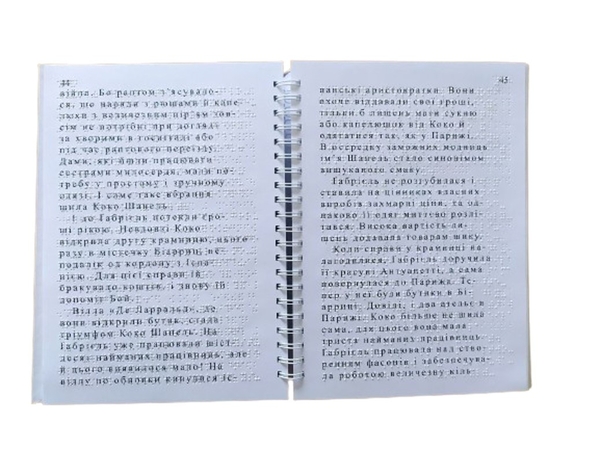 44
війна. Бо раптом з'ясувало-
ся, що наряди з рюшами й капе-
люхи з розкішним пір'ям зов-
сім не потрібні при догляді
за хворими в госпіталі або
під час раптового переїзду.
Дами, які йшли працювати
сестрами милосердя, мали по-
требу у простому і зручному
одязі. І саме таке вбрання
шила Коко Шанель.
І до Габрієль потекли гро-
ші рікою. Невдовзі Коко
відкрила другу крамницю, цього
разу в містечку Біарриц не-
подалік од кордону з Іспа-
нією. Для цієї справи їй
бракувало коштів, і знову їй
допоміг Бой.
Вілла «Де Ларральд», де
вони відкрили бутік, стала
тріумфом Коко Шанель. На
Габрієль уже працювали шіст-
десят найманих працівниць, але
й цього виявилося мало! На
віллу по обновки кинулися іс-
45
панські аристократки. Вони
охоче віддавали свої гроші,
тільки б лишень мати сукню
або капелюшок від Коко й
одягатися так, як у Парижі.
В осередку заможних модниць
ім'я Шанель стало синонімом
вишуканого смаку.
Габрієль не розгубилася і
ставила на цінниках власних
виробів захмарні ціни, та од-
наково її одяг миттєво розлі-
тався. Висока вартість ли-
шень додавала товарам шику.
Коли справи у крамниці на-
лагодилися, Габрієль доручила
її красуні Антуанетті, а сама
повернулася до Парижа. Те-
пер у неї були бутики в Бі-
аррицці, Довілі, і два цілих в
Парижі. Коко більше не шила
сама, для цього вона мала
триста найманих працівниць.
Габрієль працювала над ство-
ренням фасонів і забезпечува-
ла роботою величезну кіль-